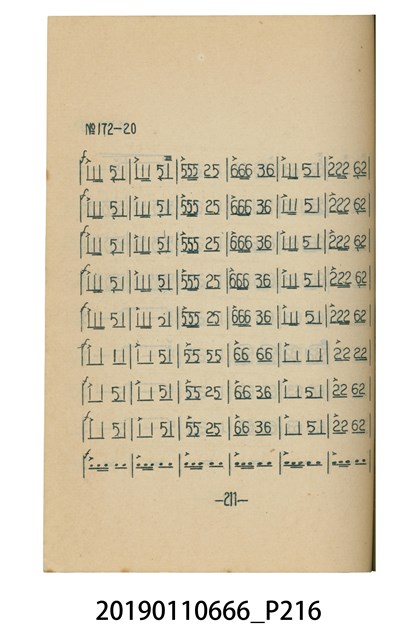 №172-20
f 111 51 | 111 51 | 555 25 | 666 36 | 111 51 | 222 62
111 51 | 111 51 | 555 25 | 666 36 | 111 51 | 222 62
111 51 | 111 51 | 555 25 | 666 36 | 111 51 | 222 62
111 51 | 111 51 | 555 25 | 666 36 | 111 51 | 222 62
111 51 | 111 51 | 555 25 | 666 36 | 111 51 | 222 62
11 11 | 11 51 | 55 55 | 66 66 | 11 11 | 22 22
11 51 | 11 51 | 55 25 | 66 36 | 11 51 | 22 62
11 51 | 11 51 | 55 25 | 66 36 | 11 51 | 22 62
-211-
20190110666_P216